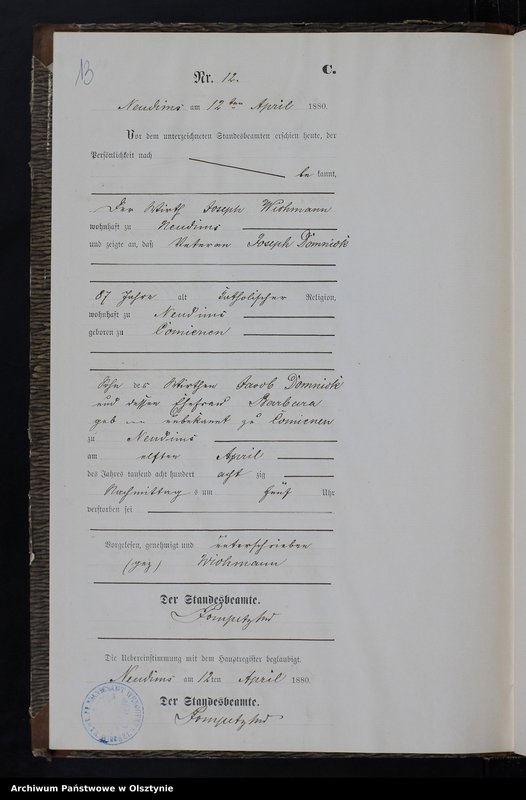 13
C.
Nr. 12.
Neudims am 12ten April 1880.
Vor dem unterzeichneten Standesbeamten erschien heute, der
Persönlichkeit nach
be kannt,
Der Wirth Joseph Wichmann
wohnhaft zu Neudims
und zeigte an, daß Veteran Joseph Domnick
87 Jahre alt katholischer Religion,
wohnhaft zu Neudims
geboren zu Comienen
Sohn des Wirthen Jacob Domnick
und dessen Ehefrau Barbara
geb unbekannt zu Comienen
zu Neudims
am elften April
des Jahres tausend acht hundert acht zig
Nachmittag s um fünf Uhr
verstorben sei
Vorgelesen, genehmigt und unterschrieben
(gez) Wichmann
Der Standesbeamte.
Die Uebereinstimmung mit dem Hauptregister beglaubigt.
Neudims am 12ten April 1880.
Der Standesbeamte.
Archiwum Państwowe w Olsztynie